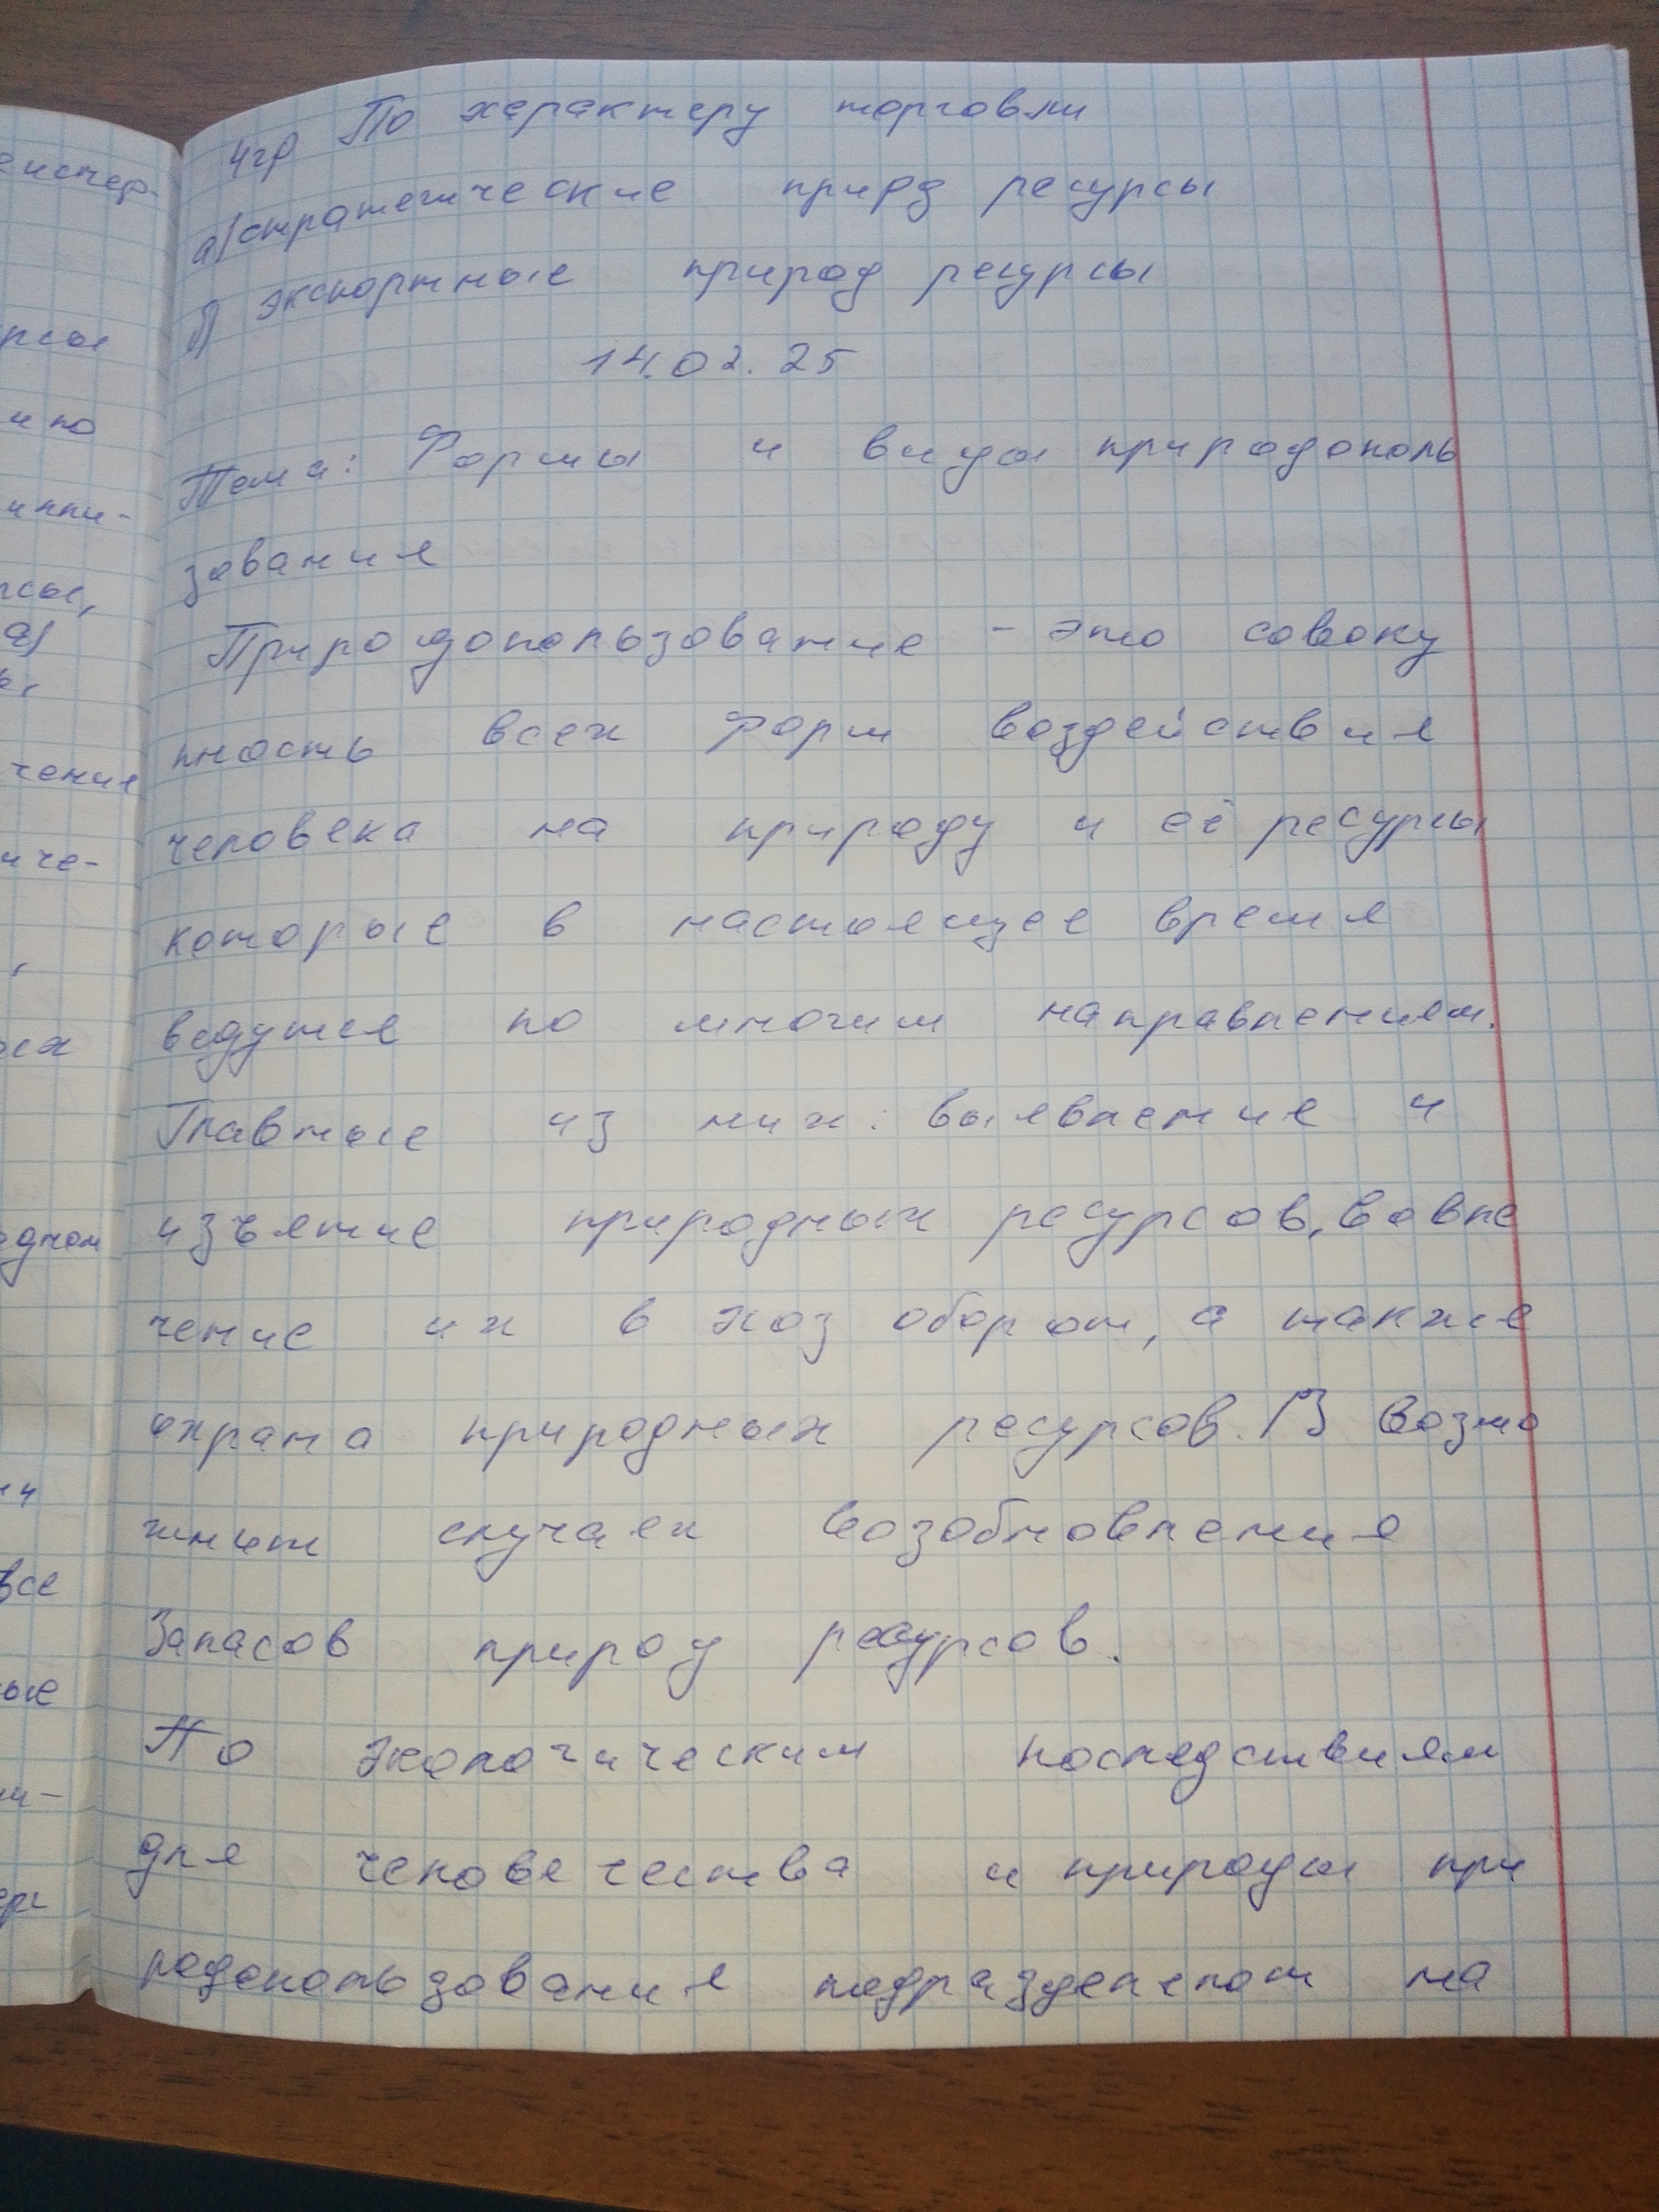 4гр По характеру торговли
а) стратегические прирд ресурсы
б) экспортные природ ресурсы
14.02.25
Тема: Формы и виды природополь
зования
Природопользование - это совоку
пность всех форм воздействия
человека на природу и её ресурсы
которые в настоящее время
ведутся по многим направлениям.
Главные из них: выявление и
изъятие природных ресурсов, вовле
чение их в хоз оборот, а также
охрана природных ресурсов. В возмо
жных случаях возобновления
Запасов природ ресурсов.
По экологическим последствиям
для человечества и природы при
родопользования подразделяют на